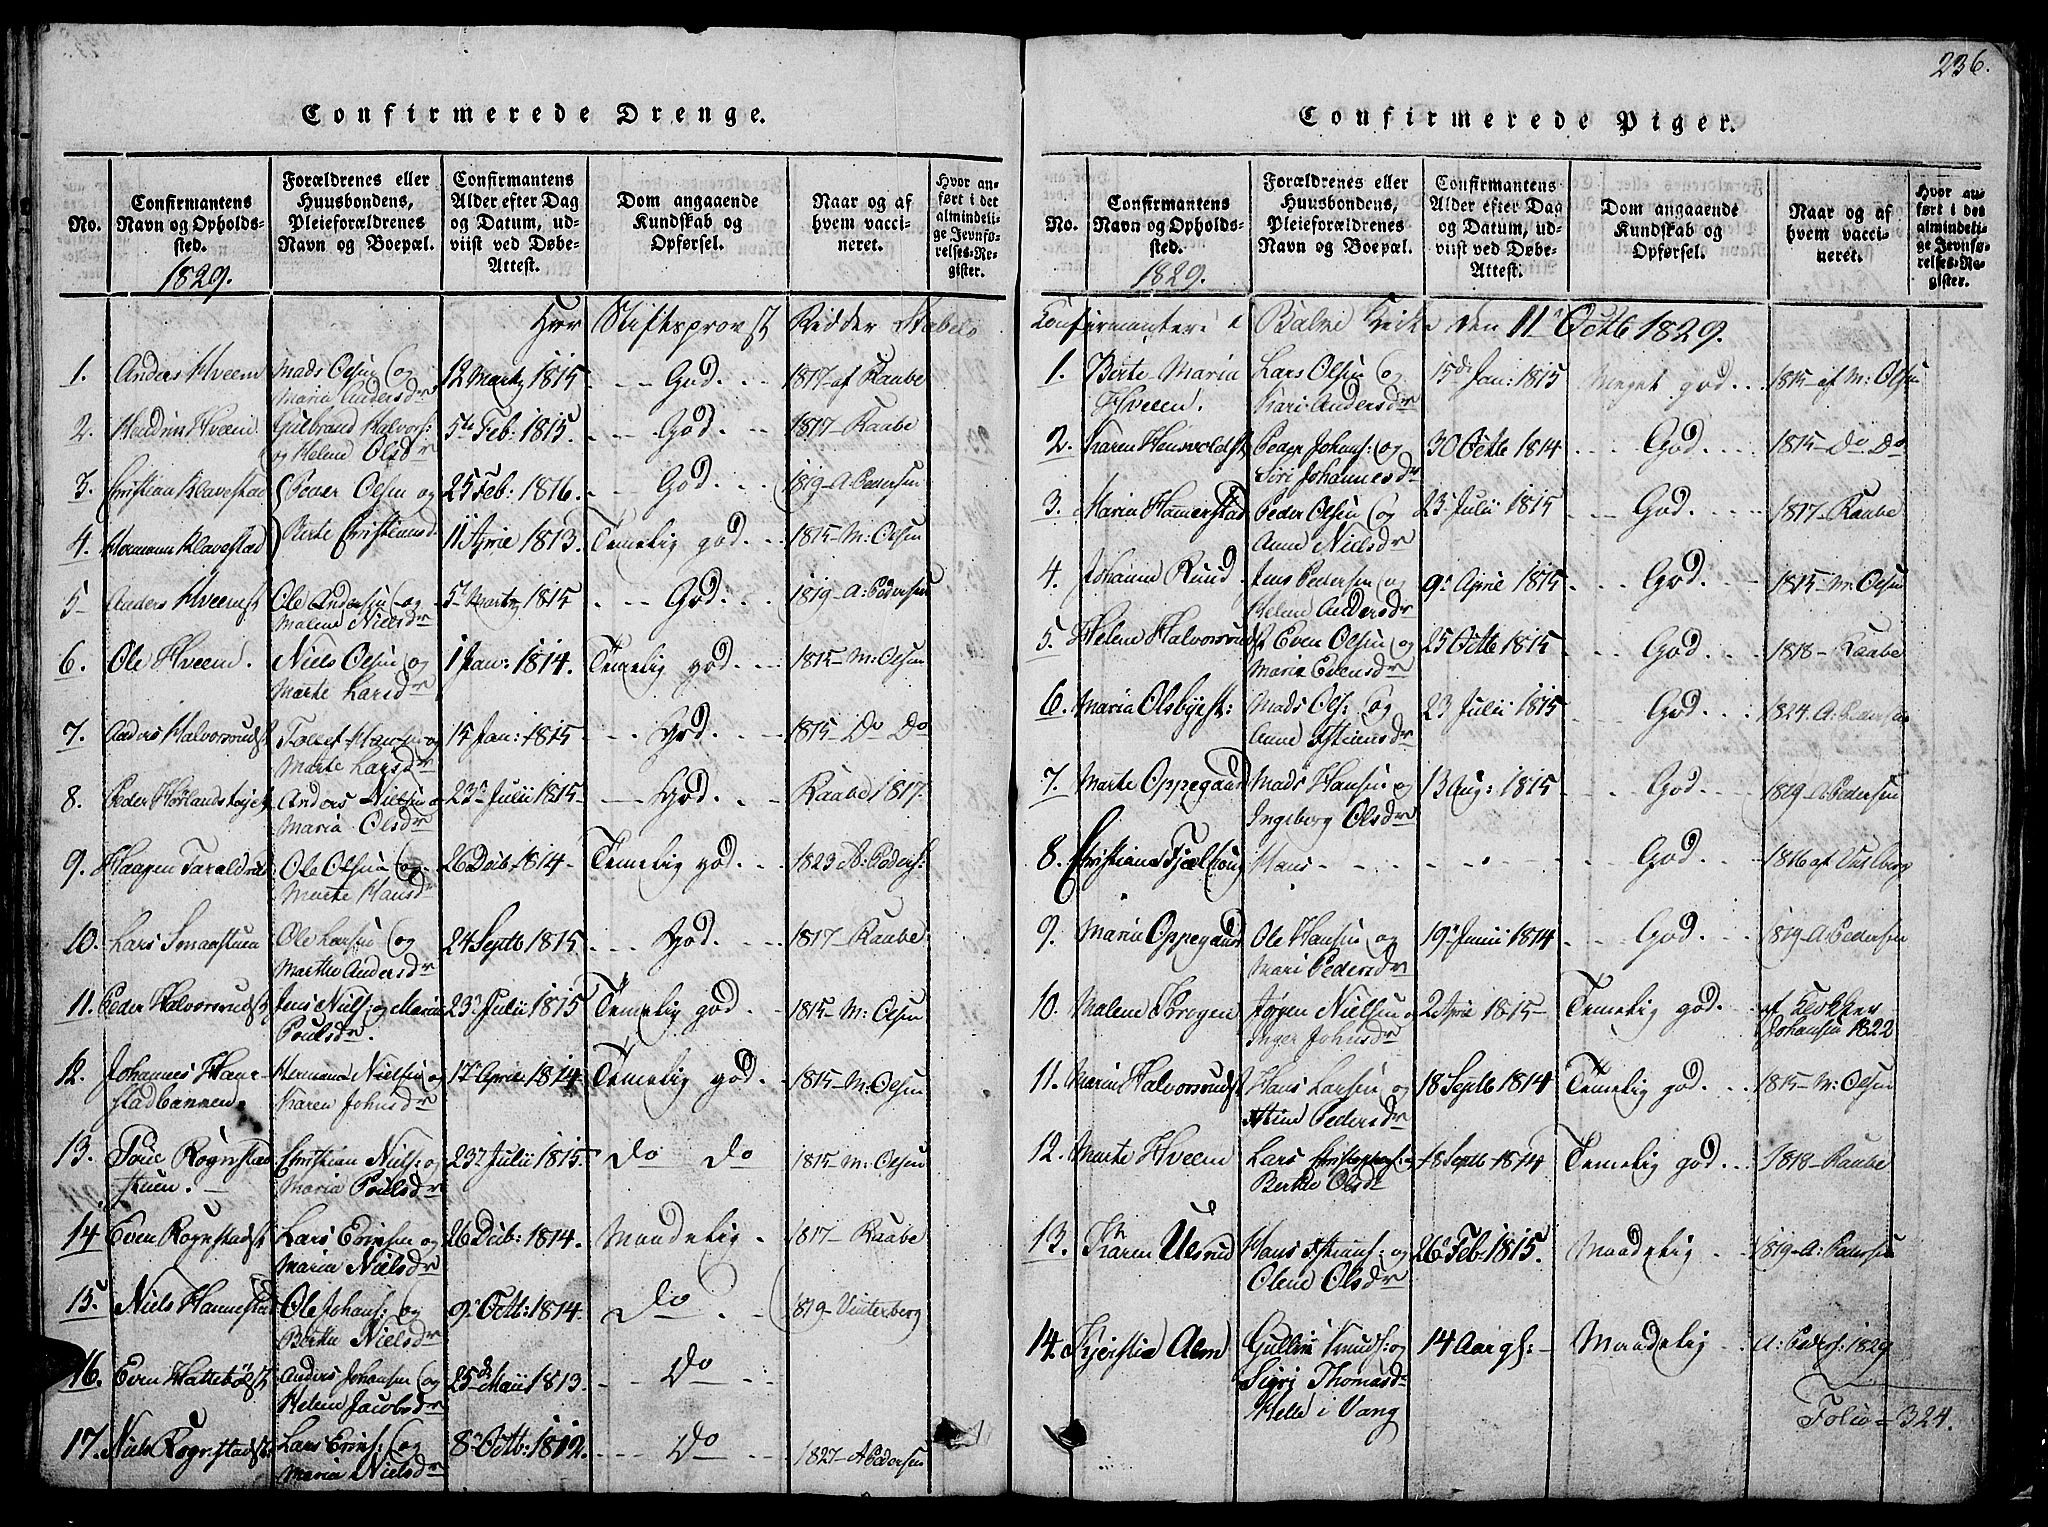 236.
Confirmerede Drenge.
No.
Confirmantens Navn og Opholds-sted.
1829.
Forældrenes eller Huusbondens, Pleieforældrenes Navn og Boepæl.
Confirmantens Alder efter Dag og Datum, ud-viist ved Døbe-Attest.
Dom angaaende Kundskab og Opførsel.
Naar og af hvem vacci-neret.
Hvor an-ført i det almindeli-ge Jevnfø-relses-Re-gister.
Herr Stiftsprovst Ridder Stabels
1. Anders Hveem Mads Olsen og 12 Martz 1815 God. 1817 af Raabe
Maria Andersdr
2. Hveem Gulbrand Halvors: 5te Feb: 1815. God. 1817 - Raabe
og Helene Olsdr
3. Christian Klavestad Peder Olsen og 25 Feb: 1816. God. 1819 - A Pedersen
4. Hermann Klavestad Berte Christiansd. 11 April 1813. Temelig god. 1815 - M: Olsen
5 Anders Hveemst Ole Andersen og 5 Martz 1815 God. 1819 - A: Pedersen
Malene Nielsdr
6. Ole Hveem. Niels Olsen og 1 Jan: 1814. Temelig god. 1815 - M: Olsen
Marte Larsdr
7. Anders Halvorsrudst Tollef Hansen og 15 Jan: 1815 God. 1815 - Do Do
Marte Larsdr
8. Peder Anders Nielsen o 23 Julii 1815 - God. Raabe 1817.
Maria Olsdr
9. Haagen Taraldrud Ole Olsen og 26 Dcb. 1814 - Temelig god. 1823 A: Peders:
Marte Hansd
10. Lars Smaastuen Ole Larsen og 24 Septb 1815 God. 1817 - Raabe
Marthe Andersdr
11. Peder Halvorsrudst Jens Niels: og Maria 23 Julii 1815 Temelig god. 1815 - M: Olsen
Poulsdr.
12. Johannes Hane- Hermand Nielsen og 17 April 1814 Temelig god. 1815 - M: Olsen
stadbannen. Karen Johnsdr
13. Poul Rognstad Christian Niels: og 23 Julii 1815. Do Do 1815 - M: Olsen
stuen. Maria Poulsdr
14 Even Rognstadst Lars Erichsen og 26 Dcb: 1814. Maadelig. 1817 - Raabe
Maria Nielsdr
15. Niels Hannestad Ole Johans: og 9 Octb: 1814. Do 1819 - Vinterberg
Berthe Nielsdr
16. Even Anders Johansen og 25de Maii 1813. Do
Helene Jacobsdr
17. Niels Rognstadst. Lars Erichs: og 8 Octb: 1812. Do 1827 - A Pedersen
Maria Nielsdr
Confirmerede Piger.
No.
Confirmantens Navn og Opholds-sted.
1829.
Forældrenes eller Huusbondens, Pleieforældrenes Navn og Boepæl.
Confirmantens Alder efter Dag og Datum, ud-viist ved Døbe-Attest.
Dom angaaende Kundskab og Opførsel.
Naar og af hvem vacci-neret.
Hvor an-ført i det almindeli-ge Jevnfø-relses-Re-gister.
Confirmantere i Balke Kirke den 11 Octb 1829.
1. Berte Maria Lars Olsen og 15de Jan: 1815 Meget god. 1815 - af M: Olsen
Hveem. Kari Andersdr
2. Karen Peder Johans: og 30 Octb 1814 God. 1815 - Do Do
Siri Johannesdr
3. Maria Hamerstad Peder Olsen og 23 Julii 1815 God. 1817 - Raabe
Anne Nielsdr
4. Johanne Rund Jens Pedersen og 9 April 1815 God. 1815 - M: Olsen
Helene Andersdr
5. Helene Halvorsrudst Even Olsen og 25 Octb 1815 God. 1818 - Raabe
Maria Evensdr
6. Maria Olsbyest: Mads Ols: og 23 Julii 1815 God. 1824. A: Pedersen
Anne
7. Marte Oppegaard Mads Hansen og 13 Aug: 1815 God. 1819 - A Pedersen
Ingeborg Olsdr
8. Christiane Fjælhoug Hans God 1816 af
9. Maria Oppegaard Ole Hansen og 19 Junii 1814 God. 1819 - A: Pedersen
Mari Pedersdr
10. Malene Krogen Jørgen Nielsen o 2 April 1815 - Temelig god. af Klokker
Inger Johnsdr Johansen 1822
11. Maria Halvorsrudst Hans Larsen og 18 Septb 1814 Temelig god. 1815 - M: Olsen
Stine Pedersdr
12. Marte Hveem Lars Christophers: og 18 Septb 1814 Temelig god. 1818 - Raabe
Berthe Olsdr
13. Karen Ulsrud Hans og 26 Feb 1815. Maadelig. 1819 - A: Pedersen
Olene Olsdr
14. Kjerstie Alm Gullin Knuds: og 14 Aar gl: - Maadelig A: Peders: 1829
Sigri Thomasd
Helle i Vang Folio - 324.